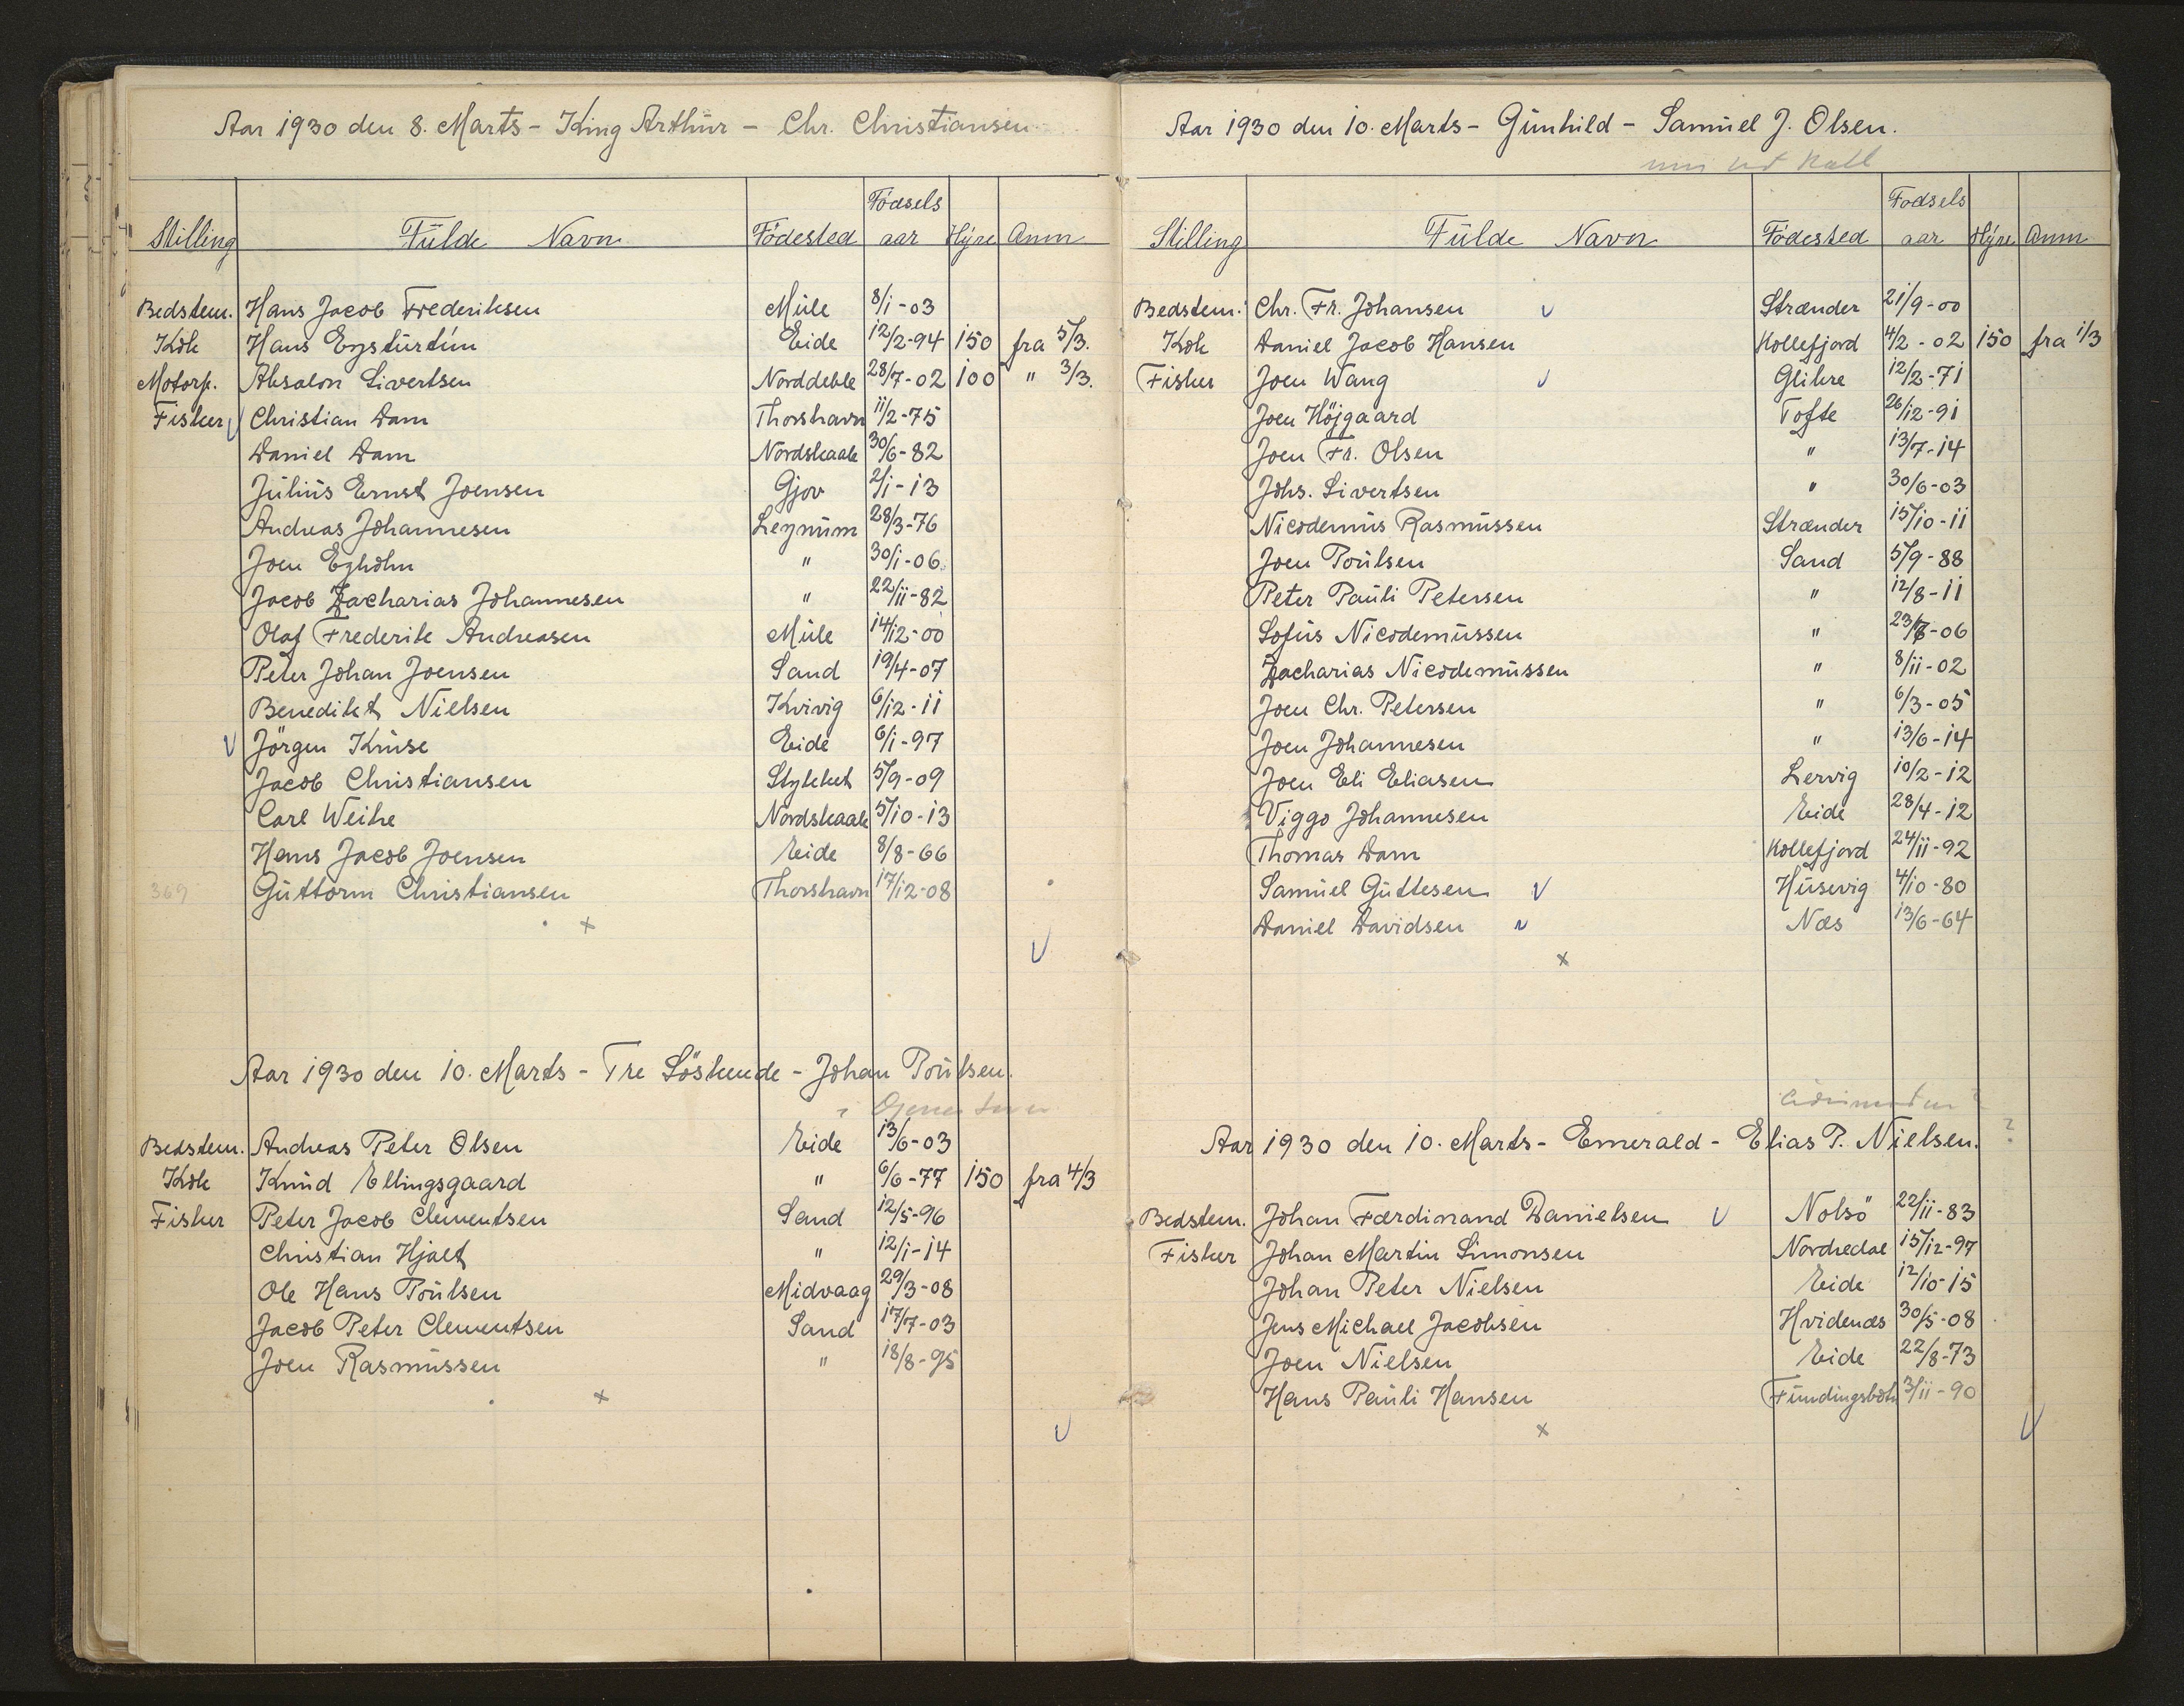 Aar 1930 den 8. Marts - King Arthur - Chr. Christiansen
Stilling Fulde Navn Födested Födsels aar Hyre Anm
Bedstem. Hans Jacob Frederiksen Mule 8/1-03
Kok Hans Eysturtún Eide 12/2-94 150 fra 5/3.
Motorp. Absalon Sivertsen Norddeble 28/7-02 100 " 3/3.
Fisker Christian Dam Thorshavn 11/2-75
Daniel Dam Nordskaale 30/6-82
Julius Ernst Joensen Gjov 2/1-13
Andreas Johannesen Leynum 28/3-76
Joen Egholm " 30/1-06.
Jacob Zacharias Johannesen " 22/11-82
Olaf Frederik Andreasen Mule 14/12-00
Peter Johan Joensen Sand 19/4-07
Benedikt Nielsen Kvivig 6/12-11
Jörgen Kruse Eide 6/1-97
Jacob Christiansen Stykket 5/9-09
Carl Weihe Nordskaale 5/10-13
Hans Jacob Joensen Eide 8/8-66
369 Guttorm Christiansen Thorshavn 17/12-08
x
Aar 1930 den 10. Marts - Tre Söskende - Johan Poulsen.
Bedstem. Andreas Peter Olsen Eide 13/6-03
Kok Knud Ellingsgaard " 6/6-77 150 fra 4/3
Fisker Peter Jacob Clementsen Sand 12/5-96
Christian Hjalt " 12/1-14
Ole Hans Poulsen Midvaag 29/3-08
Jacob Peter Clementsen Sand 17/7-03
Joen Rasmussen " 18/8-95
x
Aar 1930 den 10. Marts - Gunhild - Samuel J. Olsen.
Stilling Fulde Navn Födested Fodsels aar Hyre Anm
Bedstem. Chr. Fr. Johansen Strænder 21/9-00
Kok Daniel Jacob Hansen Kollefjord 4/2-02 150 fra 1/3
Fisker Joen Wang Glibre 12/2-71
Joen Höjgaard Tofte 26/12-91
Joen Fr. Olsen " 13/7-14
Johs. Sivertsen " 30/6-03
Nicodemus Rasmussen Strænder 15/10-11
Joen Poulsen Sand 5/9-88
Peter Pauli Petersen " 12/8-11
Sofus Nicodemussen " 23/8-06
Zacharias Nicodemussen " 8/11-02
Joen Chr. Petersen " 6/3-05
Joen Johannesen " 13/6-14
Joen Eli Eliasen Lervig 10/2-12
Viggo Johannesen Eide 28/4-12
Thomas Dam Kollefjord 24/11-92
Samuel Guttesen Husevig 4/10-80
Daniel Davidsen Næs 13/6-64
x
Aar 1930 den 10. Marts - Emerald - Elias P. Nielsen. ?
Bedstem. Johan Færdinand Danielsen Nolsö 22/11-83
Fisker Johan Martin Simonsen Nordredal 15/12-97
Johan Peter Nielsen Eide 12/10-15
Jens Michael Jacobsen Hvidenæs 30/5-08
Joen Nielsen Eide 22/8-73
Hans Pauli Hansen Fundingsbotn 3/11-90
x